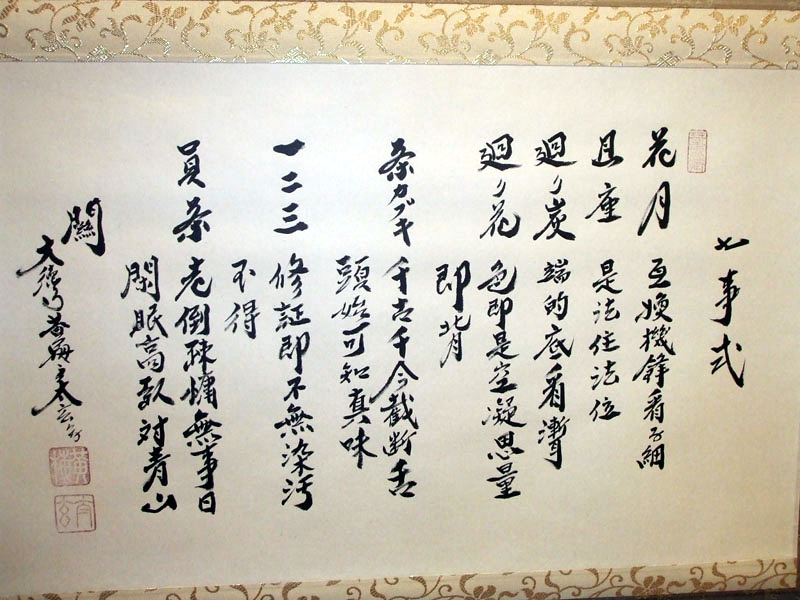 七事式
花月 互換機鋒看子細
且座 是法住法位
廻り炭 端的底看漸
廻り花 色即是空凝思量
即背
茶カブキ 千古千今截断舌
頭始可知真味
一二三 修証即不無染汚
不得
員茶 老倒疎慵無事日
閑眠高臥対青山
關